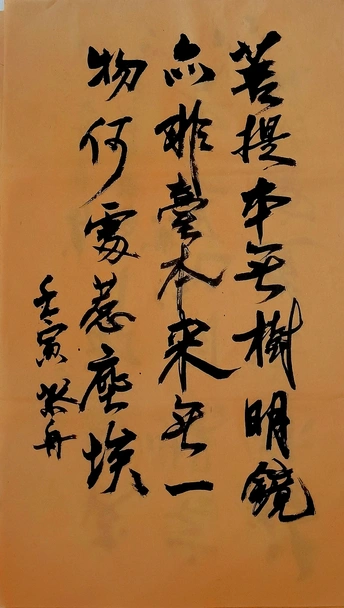 菩提本无樹明鏡
亦非臺本来无一
物何處惹塵埃
壬寅 舟